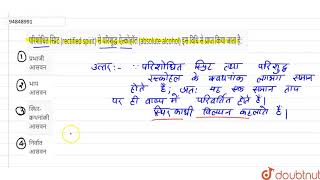 94848991
परिशोधित स्प्रिट (rectified spirit) से परिशुद्ध ऐल्कोहॉल (absolute alcohol) इस विधि से प्राप्त किया जाता है:
1 प्रभाजी आसवन
2 भाप आसवन
3 स्थिर-क्वथनांकी आसवन
4 निर्वात आसवन
उत्तर:- ∵ परिशोधित स्प्रिट तथा परिशुद्ध
एल्कोहल के क्वथनांक लगभग समान
होते हैं; अतः यह एक समान ताप
पर ही वाष्प में परिवर्तित होते हैं।
स्थिरक्वाथी विलयन कहलाते हैं।
doubtnut